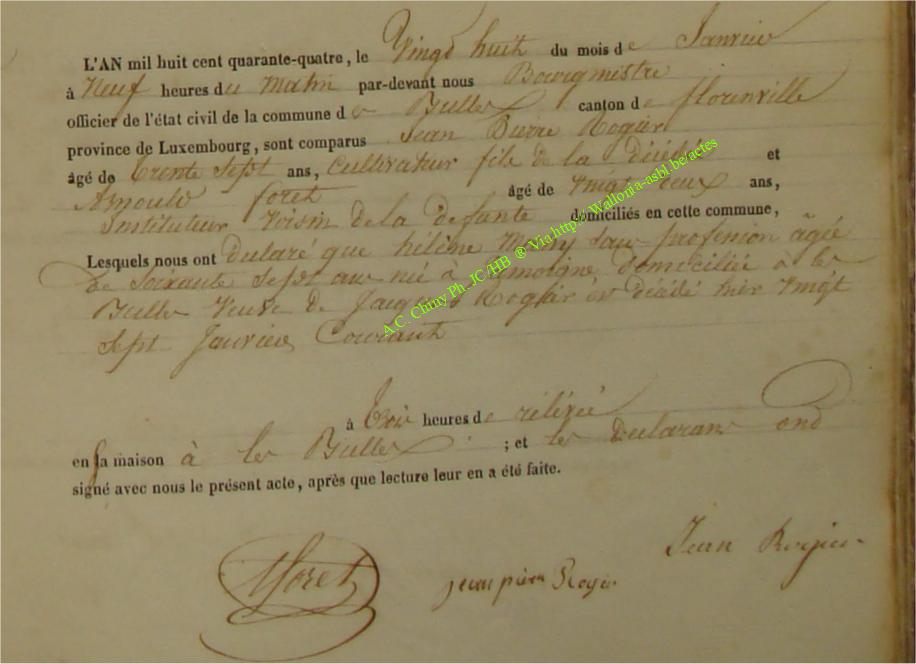 L'AN mil huit cent quarante-quatre, le Vingd huit du mois de Janvier
à Neuf heures du Matin par-devant nous Bourgmestre
officier de l'état civil de la commune de les Bulles canton de florenville
province de Luxembourg, sont comparus Jean Pierre Rogier
âgé de trente Sept ans, Cultivateur fils de la décédée et
foret âgé de Vingt deux ans,
Instituteur Voisin de la defunte domiciliés en cette commune,
Lesquels nous ont declaré que hélène sans profession âgée
de Soixante Sept ans né à domiciliée a les
Bulles Veuve de Jacques Rogier est décédé hier Vingt
Sept Janvier Courant
à trois heures de rélévée
en sa maison à les Bulles ; et les declarans ond
signé avec nous le présent acte, après que lecture leur en a été faite.
Jean Rogier
foret jean pierre Rogier
A.C. Chiny Ph. JC/HB ® Via http://Wallonia-asbl.be/actes